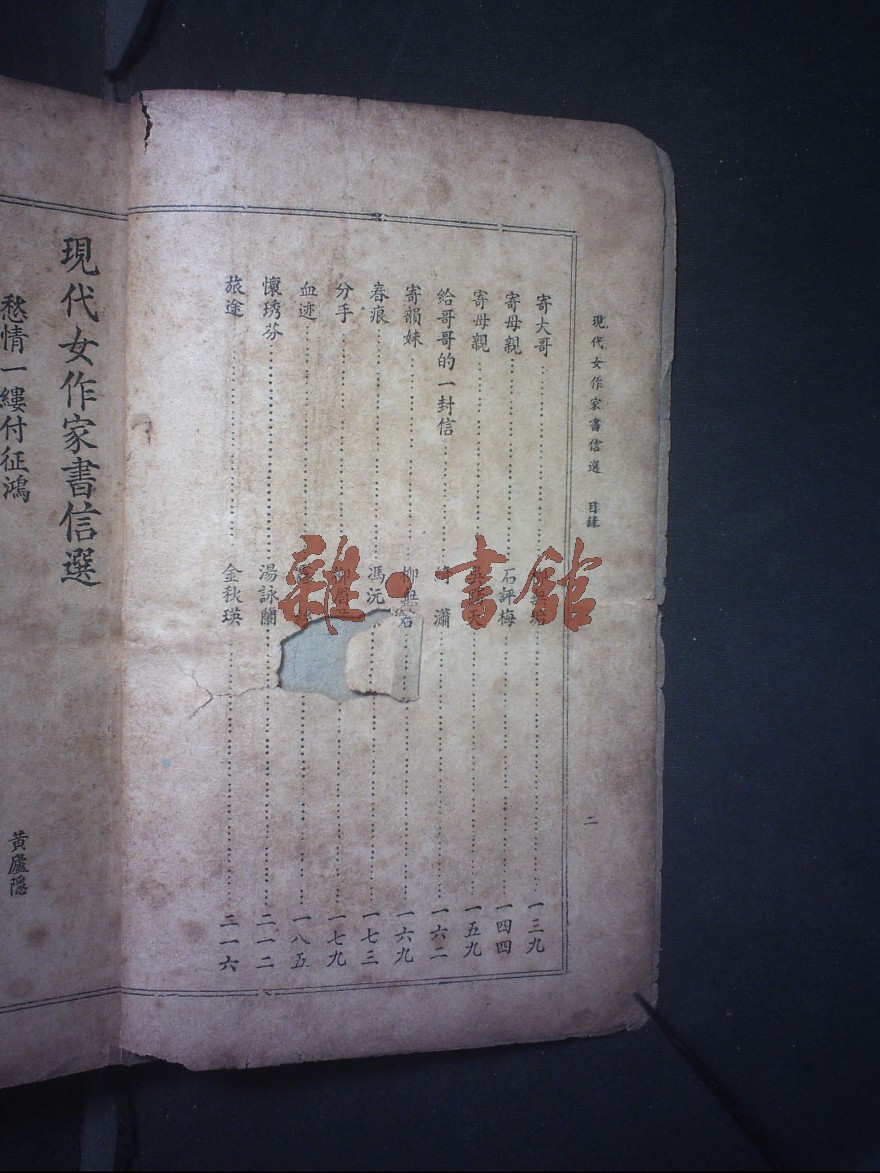 現代女作家書信選 目錄 二
寄大哥 一三九
寄母親 石評梅 一四四
寄母親 一五九
給哥哥的一封信 瀟 一六二
寄韻妹 柳無 一六九
春痕 馮沅 一七三
分手 一七九
血迹 一八五
懷琇芬 湯詠蘭 二一二
旅途 金秋瑛 二一六
雜·書館
現代女作家書信選
愁情一縷付征鴻 黃廬隱